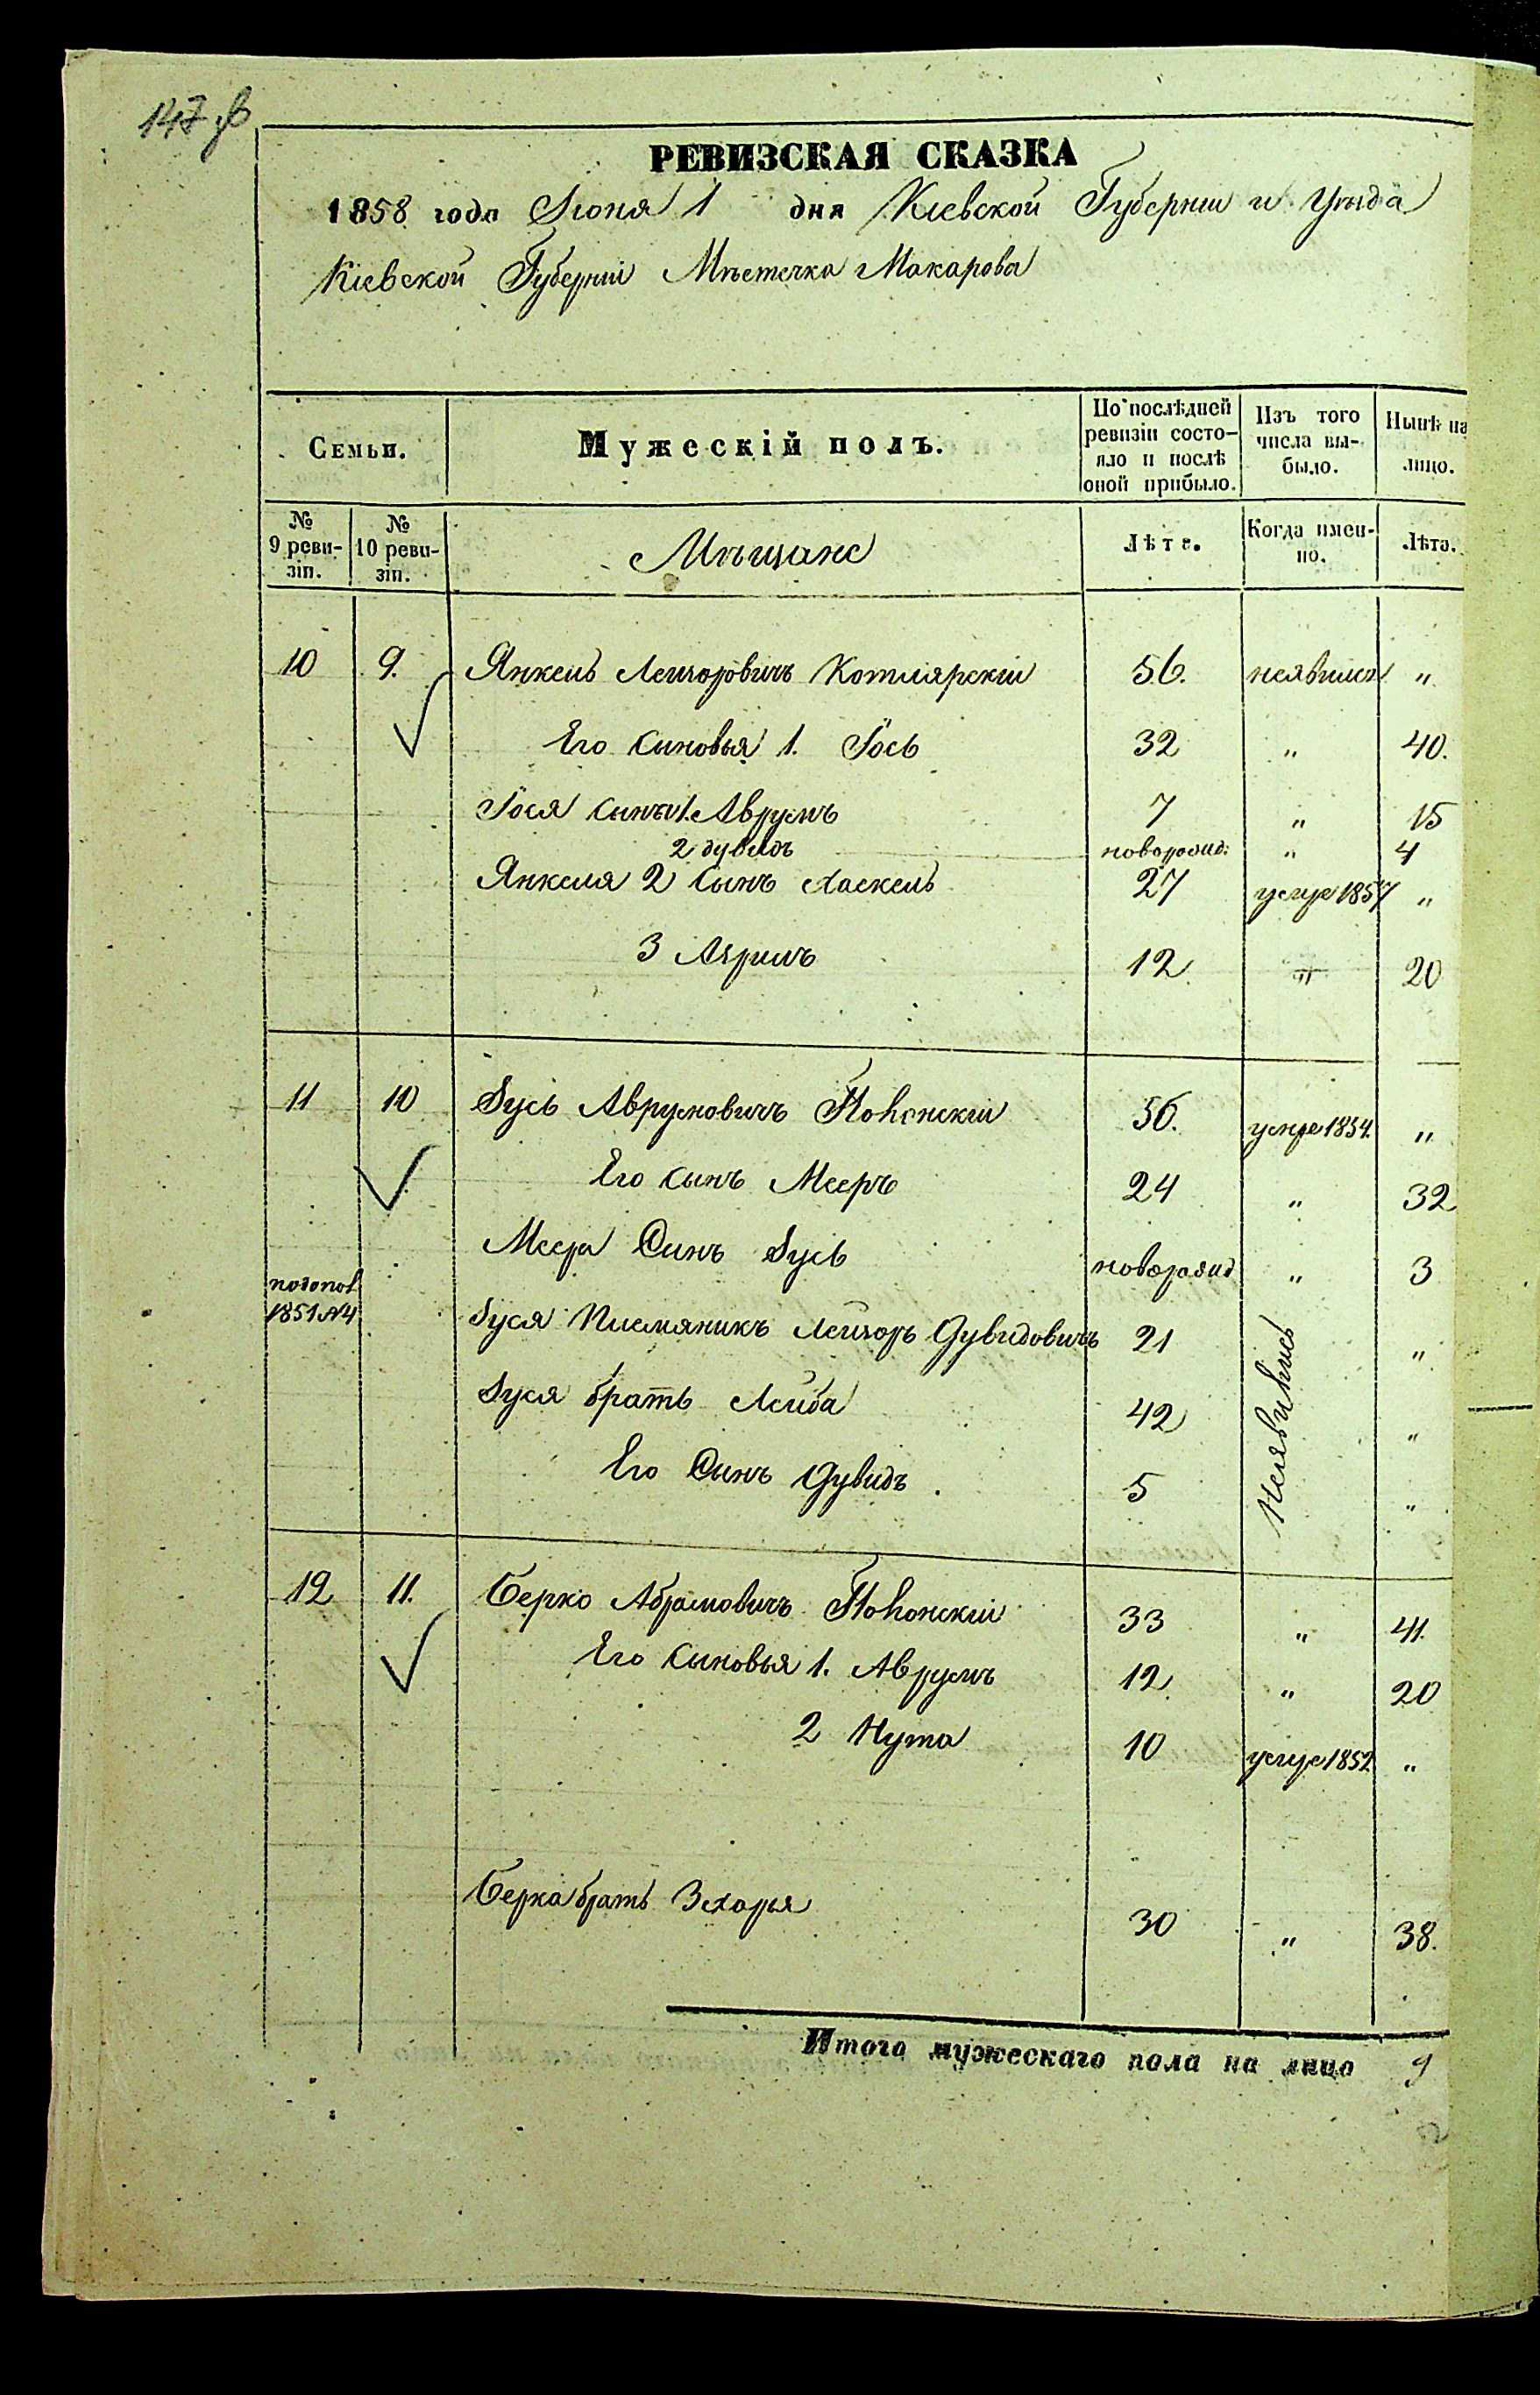 147 об
РЕВИЗСКАЯ СКАЗКА
1858 года Іюня 1 дня Кіевской Губерніи и Уѣзда
Кіевской Губерніи Мѣстечка Макарова
Семьи.
Мужескій полъ.
По послѣдней ревизіи состо-
яло и послѣ
оной прибыло.
Изъ того
числа вы-
было.
Нынѣ на
лицо.
№
9 реви-
зіи.
№
10 реви-
зіи.
Мѣщане
Лѣта.
Когда имен-
но.
Лѣта.
10 9. Янкель Лейзоровичъ Котлярскій 56. неявился "
Его сыновья 1. Іось 32 " 40.
Іося сынъ 1. Аврумъ 7 " 15
2 дувидъ новорожд: " 4
Янкеля 2 сынъ Хаскель 27 умре 1857 "
3 12 " 20
11 10 Зусь Аврумовичъ 56. умре 1854. "
Его сынъ Мееръ 24 " 32
Меера Сынъ Зусь новорожд " 3
подопол
1851 №4
Зуся Племяникъ Лейзоръ Дувидовичъ 21 "
Неявились
Зуся братъ Лейба 42 "
Его Сынъ Дувидъ 5 "
12 11. Берко Абрамовичъ 33 " 41.
Его сыновья 1. Аврумъ 12 " 20
2 Нута 10 умре 1852 "
Берка братъ Зхарья 30 " 38.
Итого мужескаго пола на лицо 9